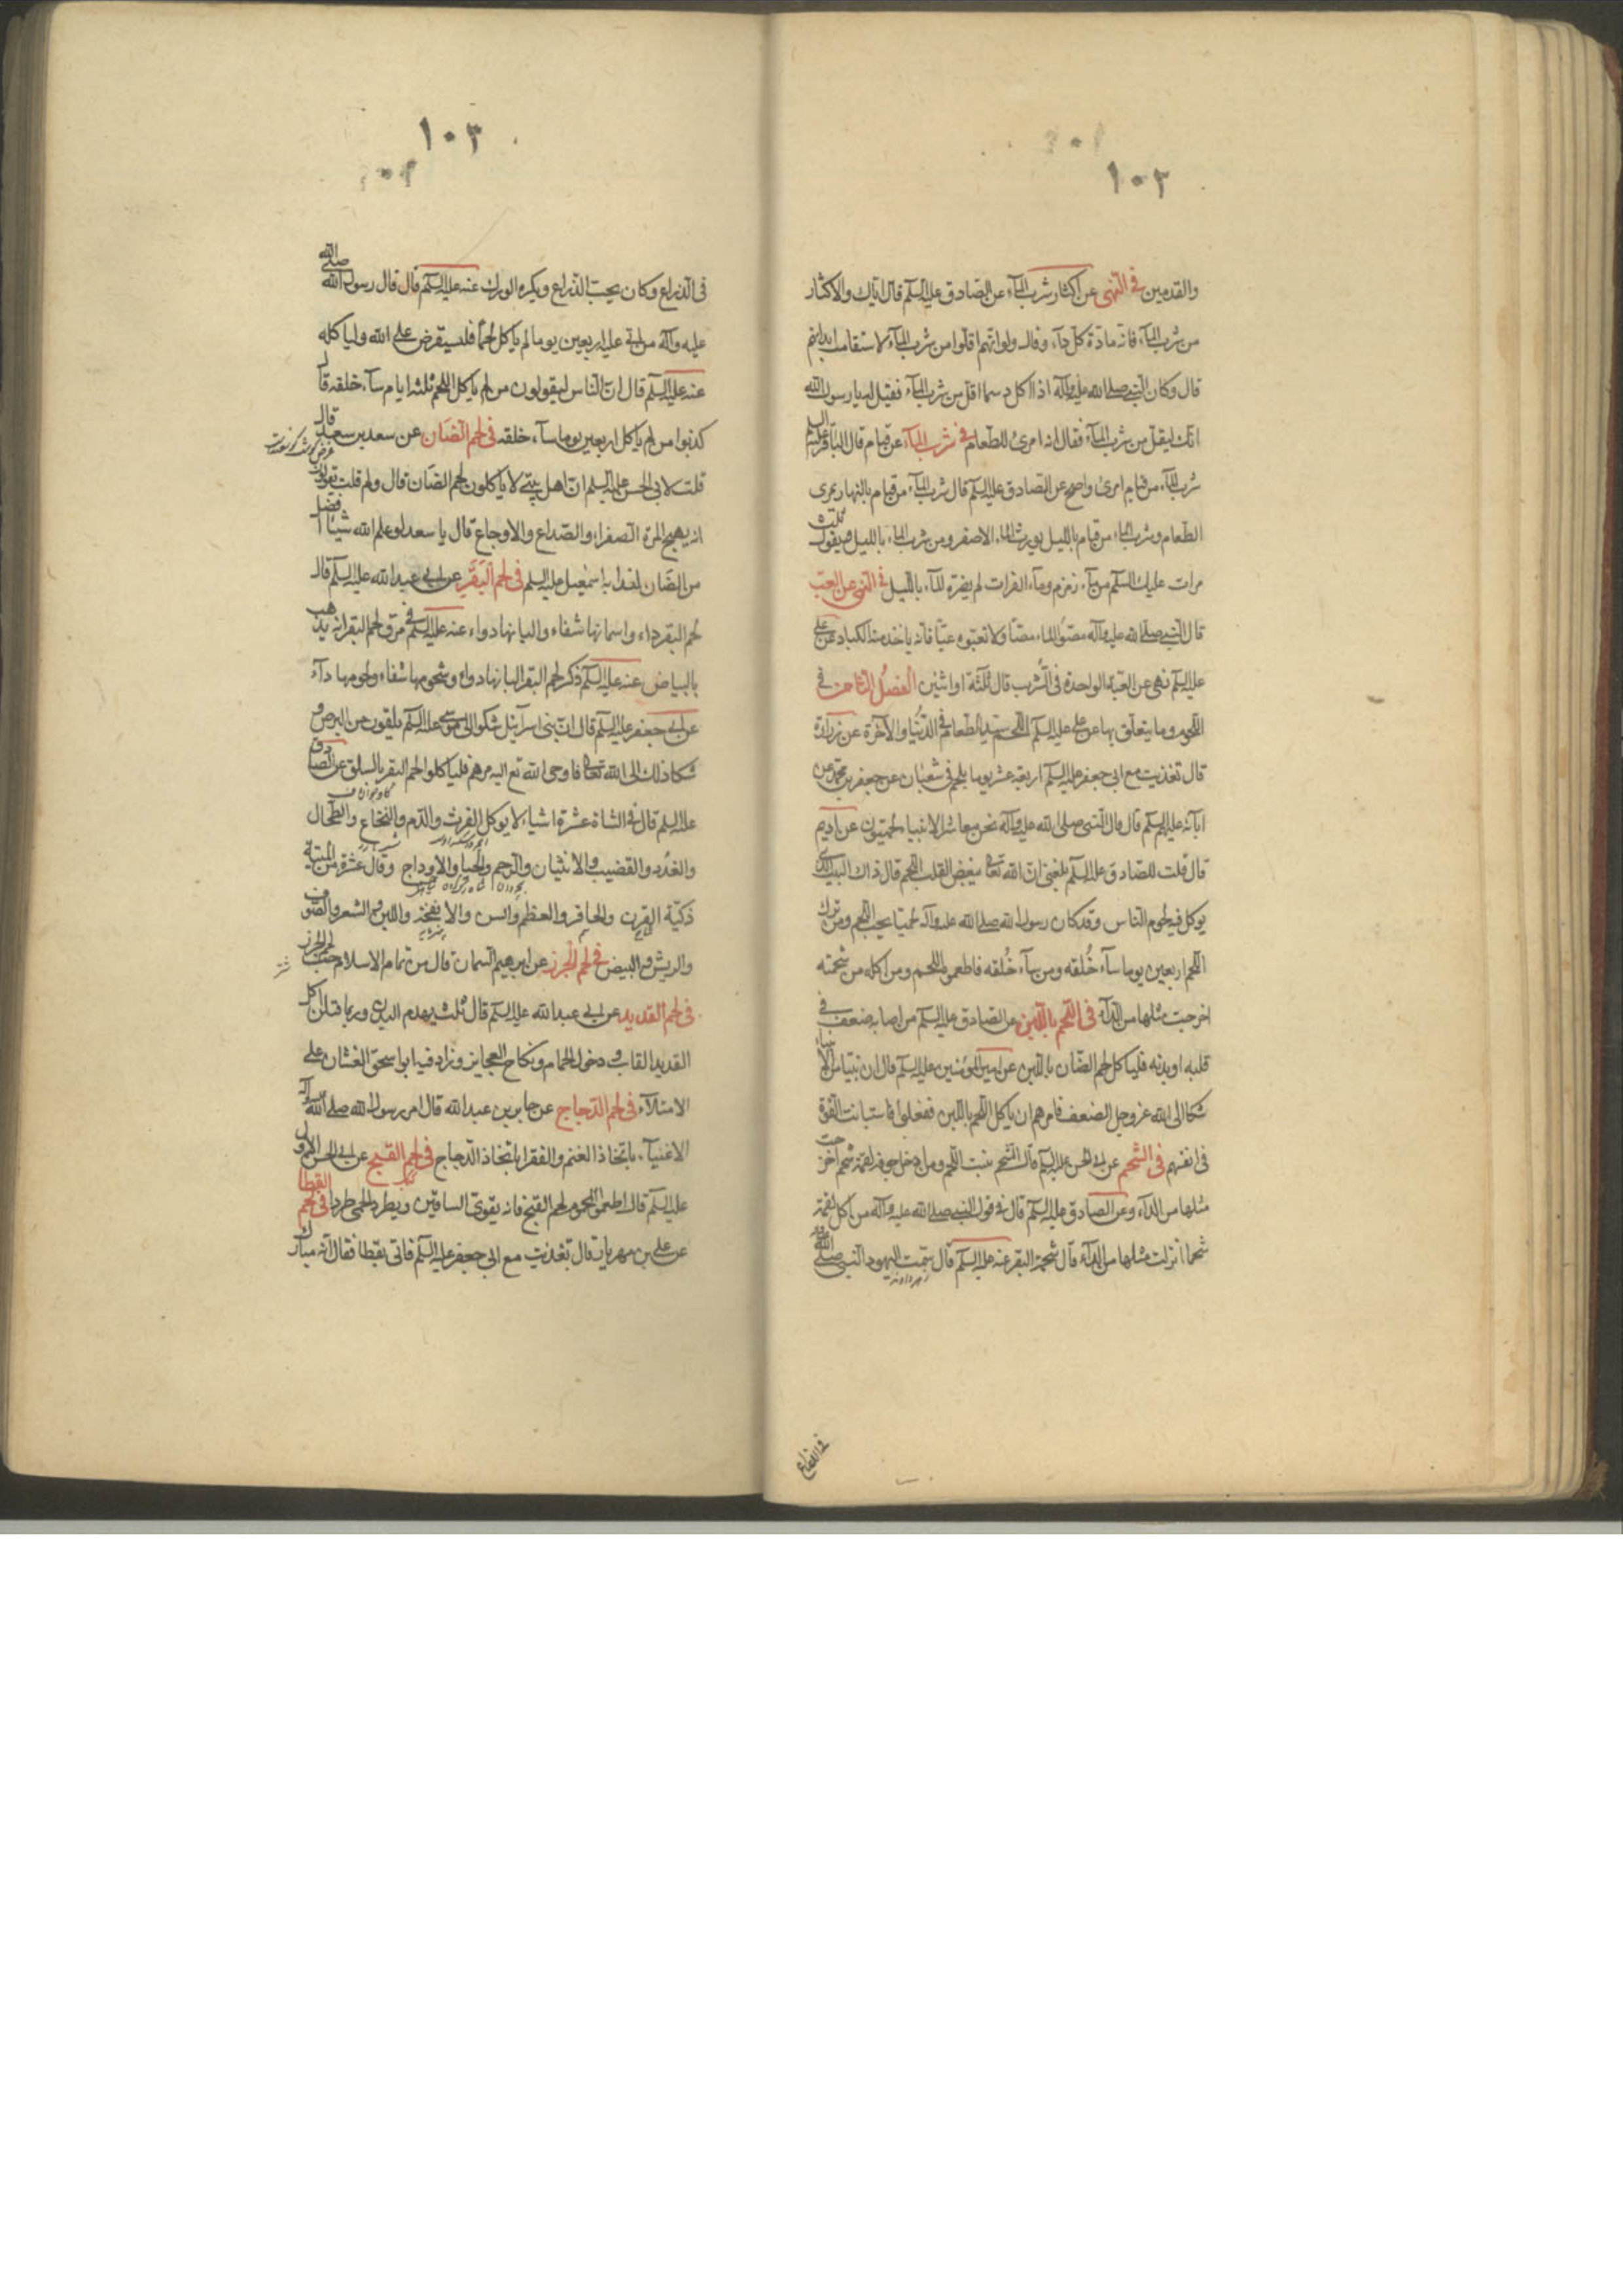 ١٠٢
والقدمين في النهى عن اكثار شرب المآء عن الصادق عليه السلم قال اياك والاكثار
من شرب المآء فانه مادة كل دآء وقال ولو انهم اقلوا من شرب المآء لاستقامت ابدانهم
قال وكان النبى صلى الله عليه وآله اذا اكل دسما اقل من شرب المآء فقيل له يا رسول الله
انك ليقل من شرب المآء فقال انه امرئ للطعام في شرب المآء عن قيام قال الباقر عليه السلم
شرب المآء من قيام امرئ واصح عن الصادق عليه السلم قال شرب المآء من قيام بالنهار يمرى
الطعام وشرب الماء من قيام بالليل يورث الماء الاصفر ومن شرب الماء بالليل ويقول ثلث
مرات عليك السلم من مآء زمزم ومآء الفرات لم يضره المآء بالليل في النهى عن العب
قال النبى صلى الله عليه وآله مصوا الماء مصا ولا تعبوه عبا فانه ياخذ منه الكباد عن على
عليه السلم نهى عن العبة الواحدة في الشرب قال ثلثة او اثنين الفصل الثامن في
اللحوم وما يتعلق بها عن على عليه السلم اللحم سيد الطعام في الدنيا والآخرة عن زرارة
قال تغذيت مع ابى جعفر عليه السلم اربعة عشر يوما بلحم في شعبان عن جعفر بن محمد عن
آبائه عليهم السلم قال قال النبى صلى الله عليه وآله نحن معاشر الانبياء لحميون عن اديم
قال قلت للصادق عليه السلم بلغنى ان الله تعا يبغض القلب اللحم قال ذاك البيت الذى
يوكل فيه لحوم الناس وقد كان رسول الله صلى الله عليه وآله لحميا يحب اللحم ومن ترك
اللحم اربعين يوما سآء خُلقه ومن سآء خُلقه فاطعموه اللحم ومن اكله من شحمته
اخرجت مثلها من الدآء في اللحم باللبن عن الصادق عليه السلم من اصابه ضعف في
قلبه او بدنه فلياكل لحم الضان باللبن عن امير المؤمنين عليه السلم قال ان نبيا من الانبياء
شكا الى الله عز وجل الضعف فامرهم ان ياكل اللحم باللبن ففعلوا فاستبانت القوة
في انفسهم في الشحم عن ابى الحسن عليه السلم قال الشحم ينبت اللحم ومن ادخل جوفه لقمة شحم اخرجت
مثلها من الدآء وعن الصادق عليه السلم قال في قول النبى صلى الله عليه وآله من اكل لقمة
شحما انزلت مثلها من الدآء قال شحمة البقر عنه عليه السلم قال سمت اليهود النبى صلى الله عليه وآله
في الذراع
١٠٣
في الذراع وكان يحب الذراع ويكره الورك عنه عليه السلم قال قال رسول الله صلى الله
عليه وآله من اتى عليه اربعين يوما لم ياكل لحما فليستقرض على الله ولياكله
عنه عليه السلم قال ان الناس ليقولون من لم ياكل اللحم ثلثه ايام سآء خلقه قال
كذبوا من لم ياكل اربعين يوما سآء خلقه في لحم الضان عن سعد بن سعد قال
قلت لابى الحسن عليه السلم ان اهل بيتى لا ياكلون لحم الضان قال ولم قلت يقولون
انه يهيج المرة الصفراء والصداع والاوجاع قال يا سعد لو علم الله شيئا افضل
من الضان لفدا به اسمعيل عليه السلم في لحم البقر عن ابى عبد الله عليه السلم قال
لحم البقر داء واسمانها شفاء والبانها دواء عنه عليه السلم في مرق لحم البقر انه يذهب
بالبياض عنه عليه السلم ذكر لحم البقر البانها دواء وشحومها شفاء ولحومها دآء
عن ابى جعفر عليه السلم قال ان بنى اسرآئيل شكوا الى موسى عليه السلم ما يلقون من البرص و
شكا ذلك الى الله تعا فاوحى الله تع اليه مرهم فلياكلوا لحم البقر بالسلق عن الصادق
عليه السلم قال في الشاة عشرة اشياء لا يوكل الفرث والدم والنخاع والطحال
والغدد والقضيب والانثيان والرحم والحيا والاوداج وقال عشرة من الميتة
ذكية القرن والحافر والعظم والسن والانفخة واللبن والشعر والصوف
والريش والبيض في لحم الجزر عن ابرهيم السمان قال من تمام الاسلام حب لحم الجزر
في لحم القديد عن ابى عبد الله عليه السلم قال ثلث يهدم البدن وربما قتلن اكل
القديد الغاب ودخول الحمام ونكاح العجايز وزاد فيه ابو اسحق الغشان على
الامتلآء في لحم الدجاج عن جابر بن عبد الله قال امر رسول الله صلى الله عليه وآله
الاغنيآء باتخاذ الغنم والفقرا باتخاذ الدجاج في لحم القبج عن ابى الحسن الاول
عليه السلم قال اطعموا المحموم لحم القبج فانه يقوى الساقين ويطرد الحمى طردا في لحم القطا
عن على بن مهريار قال تغذيت مع ابى جعفر عليه السلم فاتى بقطا فقال انه مبارك